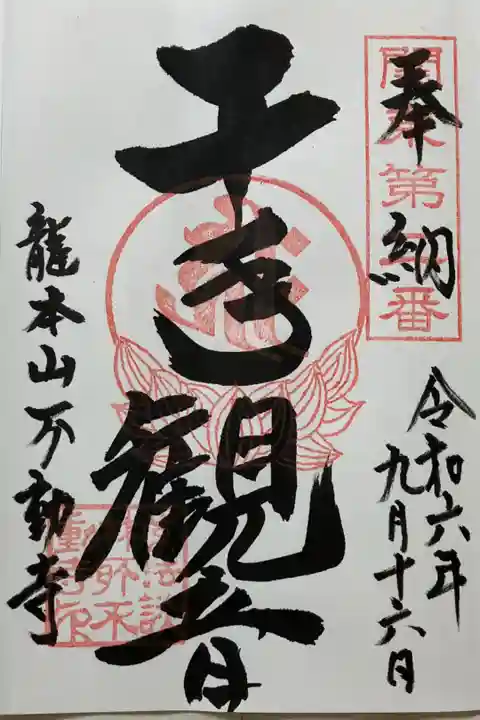 關東第二番
奉納
令和六年
九月十六日
千手観音
龍本山不動寺